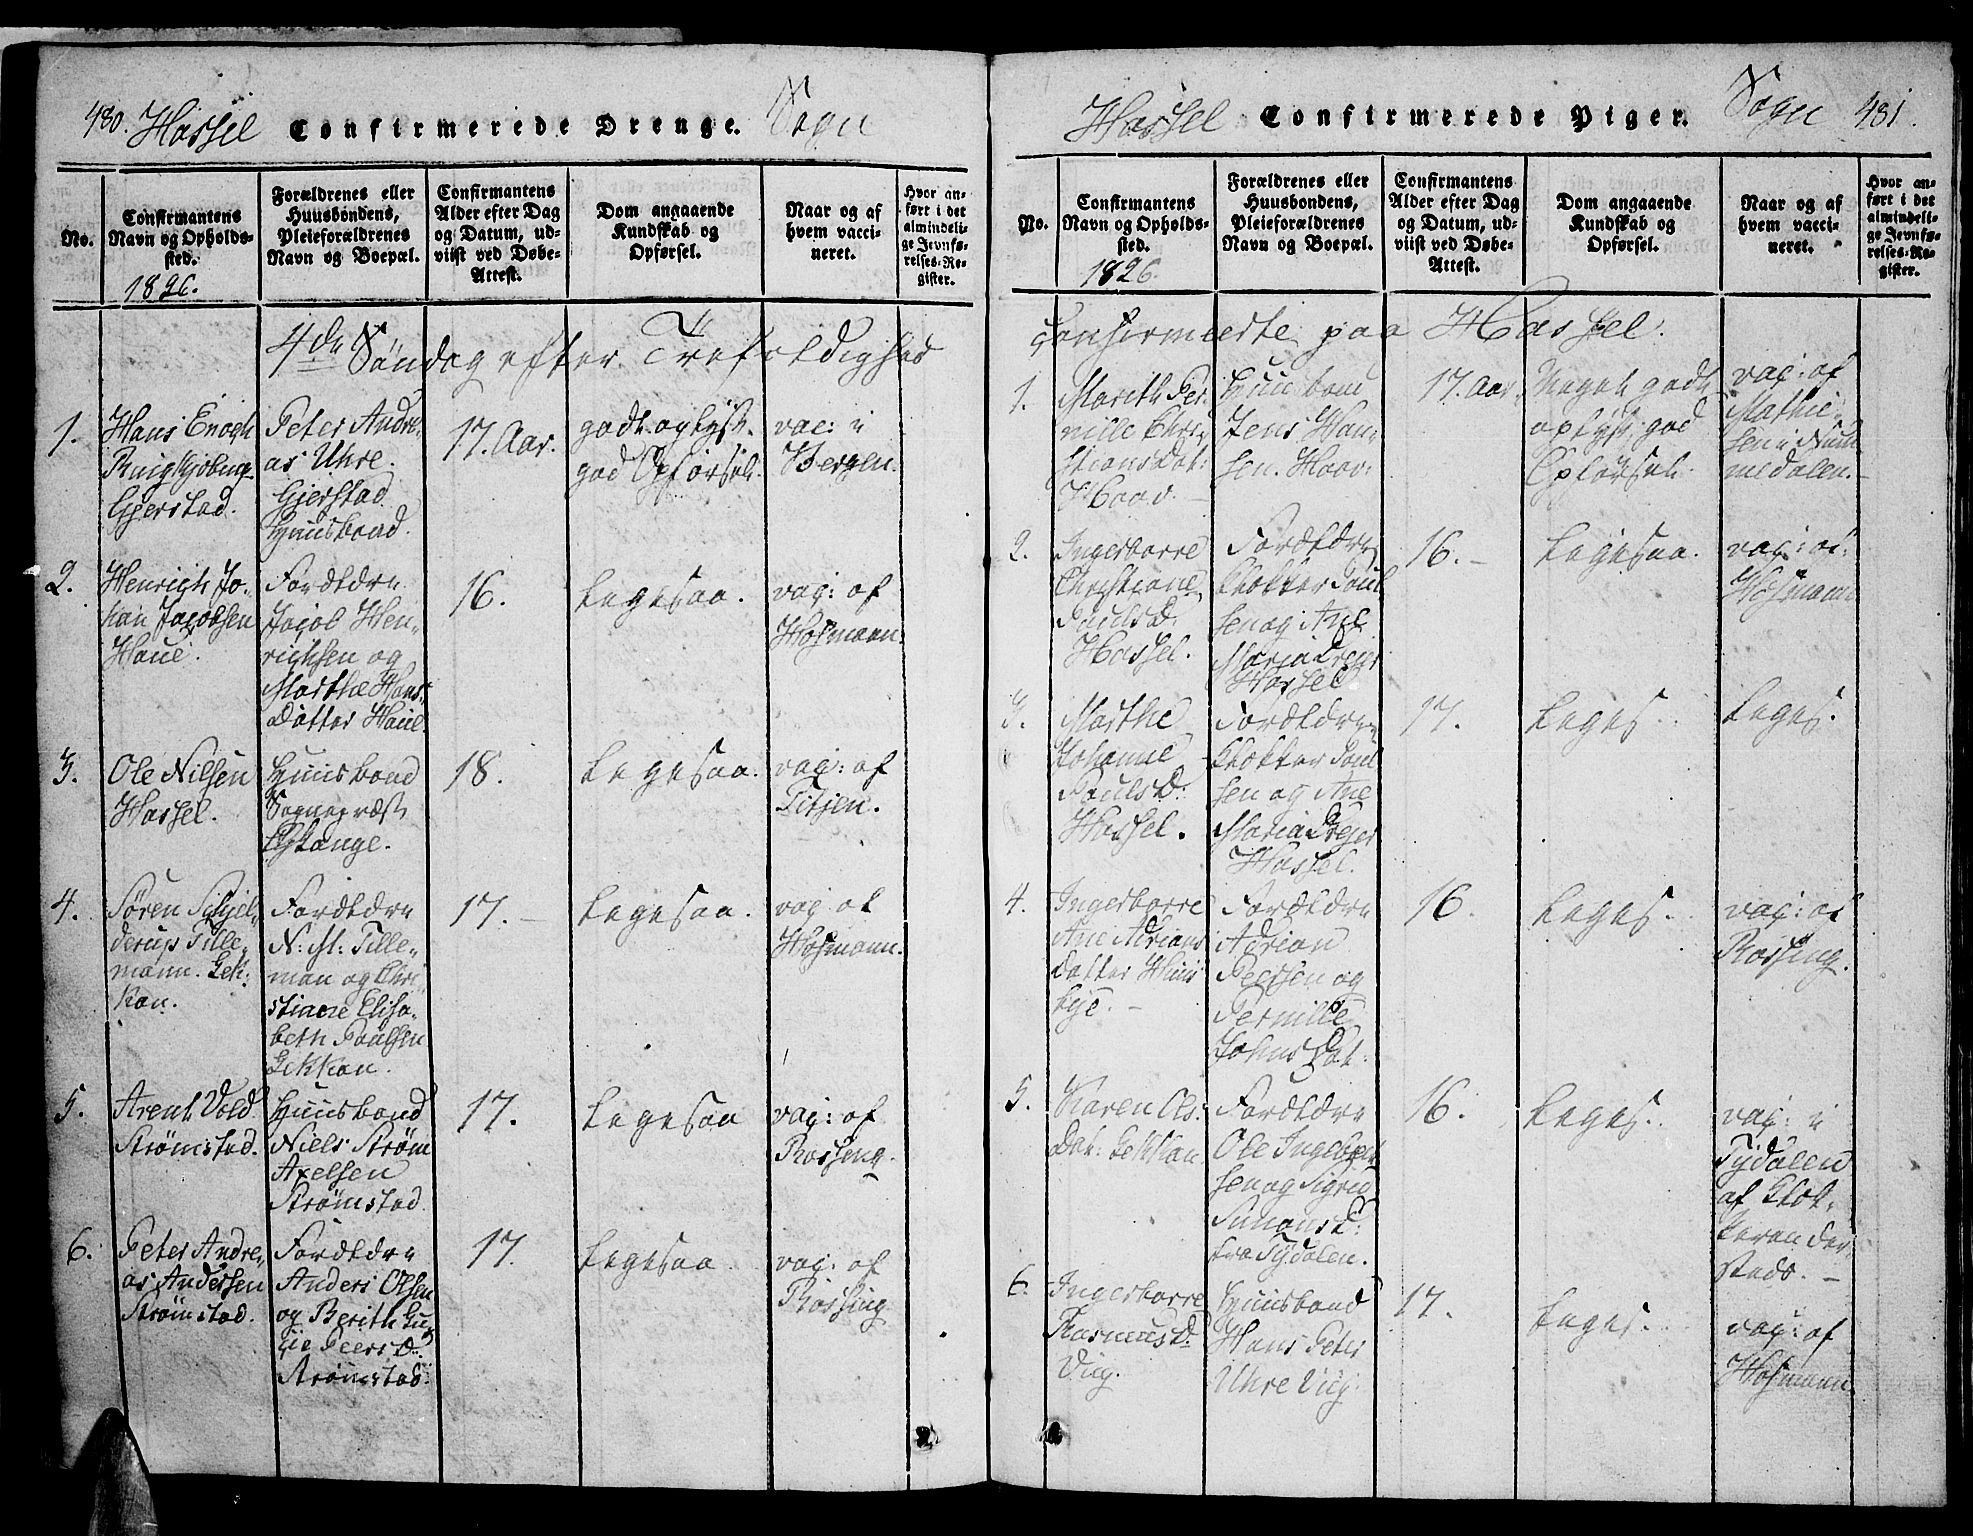 480. Hassel Confirmerede Drenge. Sogn
No.
Confirmantens
Navn og Opholds-
sted.
1826.
Forældrenes eller
Huusbondens,
Pleieforældrenes
Navn og Boepæl.
Confirmantens
Alder efter Dag
og Datum, ud-
viist ved Døbe-
Attest.
Dom angaaende
Kundskab og
Opførsel.
Naar og af
hvem vacci-
neret.
Hvor an-
ført i det
almindeli-
ge Jevnfø-
relses-Re-
gister.
4de Søndag efter Trefoldighed
1.
Hans Enogh
Gjerstad.
Peter Andre-
as Uhre.
Gjerstad
Huusbond.
17. Aar.
godt oplyst.
god Opførsel.
vac: i
Bergen.
2.
Henrich Jo-
han Jacobsen
Haue.
Forældre
Jacob Hen-
richsen og
Marthe Hans-
Datter Haue.
16.
Ligesaa.
vac: af
Hosmann.
3.
Ole Nilsen
Hassel.
Huusbond
Sognepræst
Stange.
18.
Ligesaa.
vac: af
Titjen.
4.
Søren Schjel-
derup Tille-
mann. Gek-
kan.
Forældre
N: M: Tille-
man og Chri-
stiane Elisa-
beth Paulsen
Gekkan.
17.
Ligesaa.
vac: af
Hosmann.
5.
Arent Vold
Strømstad.
Huusbond
Niels Strøm
Axelsen
Strømstad.
17.
Ligesaa
vac: af
Rossing.
6.
Peter Andre-
as Andersen
Strømstad.
Forældre
Anders Olsen
og Berith Lu-
cie Peers D:
Strømstad.
17.
Ligesaa
vac: af
Rossing
Hassel Confirmerede Piger. Sogn 481.
No.
Confirmantens
Navn og Opholds-
sted.
1826.
Forældrenes eller
Huusbondens,
Pleieforældrenes
Navn og Boepæl.
Confirmantens
Alder efter Dag
og Datum, ud-
viist ved Døbe-
Attest.
Dom angaaende
Kundskab og
Opførsel.
Naar og af
hvem vacci-
neret.
Hvor an-
ført i det
almindeli-
ge Jevnfø-
relses-Re-
gister.
Confirmerte paa Hassel.
1.
Marith Per-
nille Chri-
stiansdat:
Haav.
Huusbond
Jens Han-
sen. Haav.
17. Aar.
Meget godt
oplyst god
Opførsel.
vac: af
Mathie-
sen i Num-
medalen.
2.
Ingerborre
Christiane
Pauls D.
Hassel.
Forældre
Klokker Poul
sen og Ane
Maria Dreyer
Hassel
16.
Ligesaa.
vac: af
Hosmann
3.
Marthe
Johanne
Pouls D:
Hassel.
Forældre
Klokker Poul
sen og Ane
Maria Dreyer
Hassel.
17.
Liges.
Liges.
4.
Ingerborre
Ane Adrians
datter Huus
bye.
Forældre
Adrian
Peersen og
Pernille
Johns Dat:
16.
Liges.
vac: af
Rossing.
5.
Karen Ols:
Dat: Gekkan.
Forældre
Ole Ingebret
sen og Sigrid
Simons D:
fra Tydalen.
16.
Liges.
vac: i
Tydalen
af Klok-
keren der
Steds.
6.
Ingerborre
Rasmus D
Viig.
Huusbond
Hans Peter
Uhre Viig.
17.
Liges.
vac: af
Hosmann.